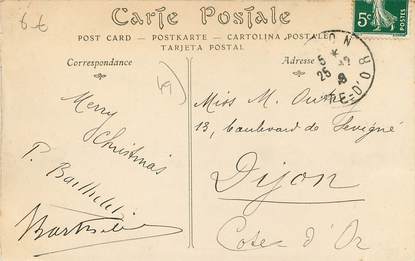 6 €
Carte Postale
POST CARD — POSTKARTE — CARTOLINA POSTALE
TARJETA POSTAL
Correspondance
Adresse
5c
Merry
Christmas
P.
Miss M.
13, boulevard de Sévigné
Dijon
Côte d'Or